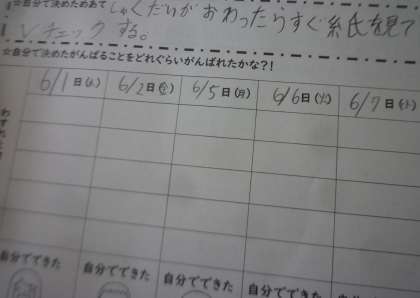 ☆自分で決めためあて しゅくだいがおわったらすぐ紙を観て
レチェックする。
☆自分で決めたがんばることをどれぐらいがんばれたかな?!
6/1日(木) 6/2日(金) 6/5日(月) 6/6日(火) 6/7日(水)
自分でできた 自分でできた 自分でできた 自分でできた